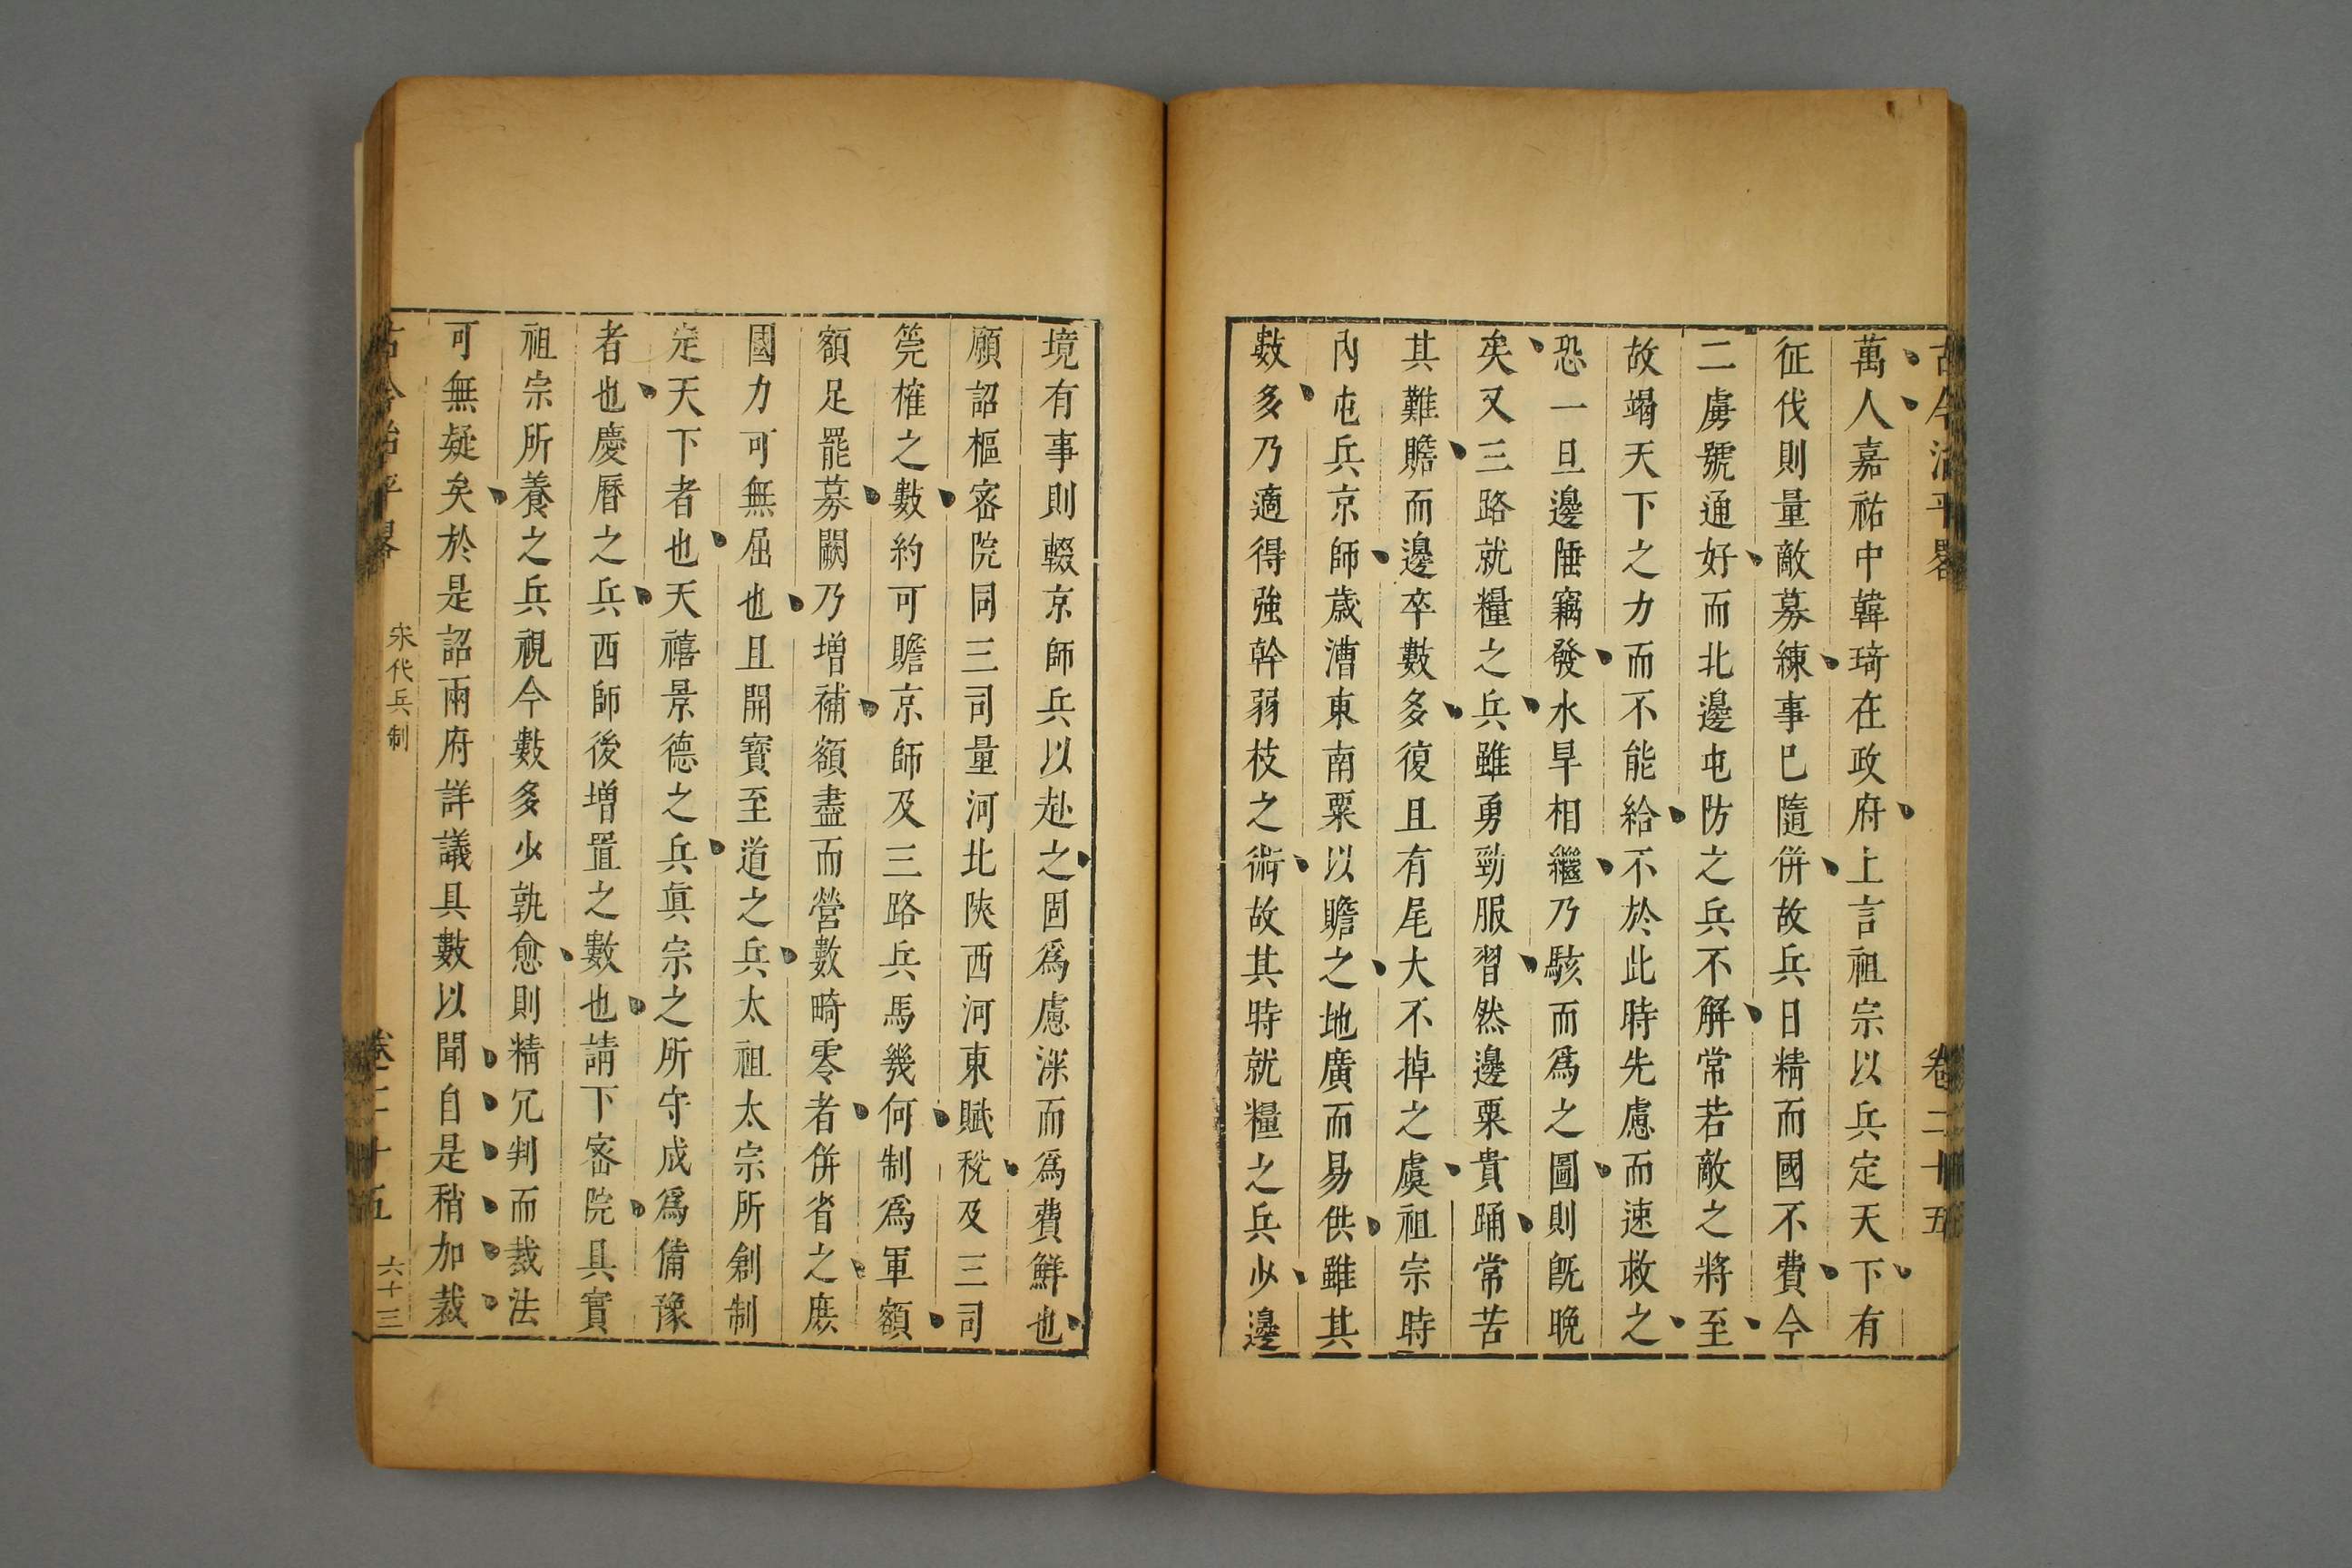 古今治平畧 卷二十五
萬人嘉祐中韓琦在政府上言祖宗以兵定天下有
征伐則量敵募練事巳隨併故兵日精而國不費今
二虜號通好而北邊屯防之兵不解常若敵之將至
故竭天下之力而不能給不於此時先慮而速救之
恐一旦邊陲竊發水旱相繼乃駭而爲之圖則旣晚
矣又三路就糧之兵雖勇勁服習然邊粟貴踊常苦
其難贍而邊卒數多復且有尾大不掉之虞祖宗時
內屯兵京師歲漕東南粟以贍之地廣而易供雖其
數多乃適得強幹弱枝之術故其時就糧之兵少邊
境有事則輟京師兵以赴之固爲慮深而爲費鮮也
願詔樞密院同三司量河北陝西河東賦稅及三司
筦榷之數約可贍京師及三路兵馬幾何制爲軍額
額足罷募闕乃增補額盡而營數畸零者併省之庶
國力可無屈也且開寶至道之兵太祖太宗所創制
定天下者也天禧景德之兵真宗之所守成爲備豫
者也慶曆之兵西師後增置之數也請下密院具實
祖宗所養之兵視今數多少孰愈則精冗判而裁法
可無疑矣於是詔兩府詳議具數以聞自是稍加裁
古今治平畧 宋代兵制 卷二十五 六十三